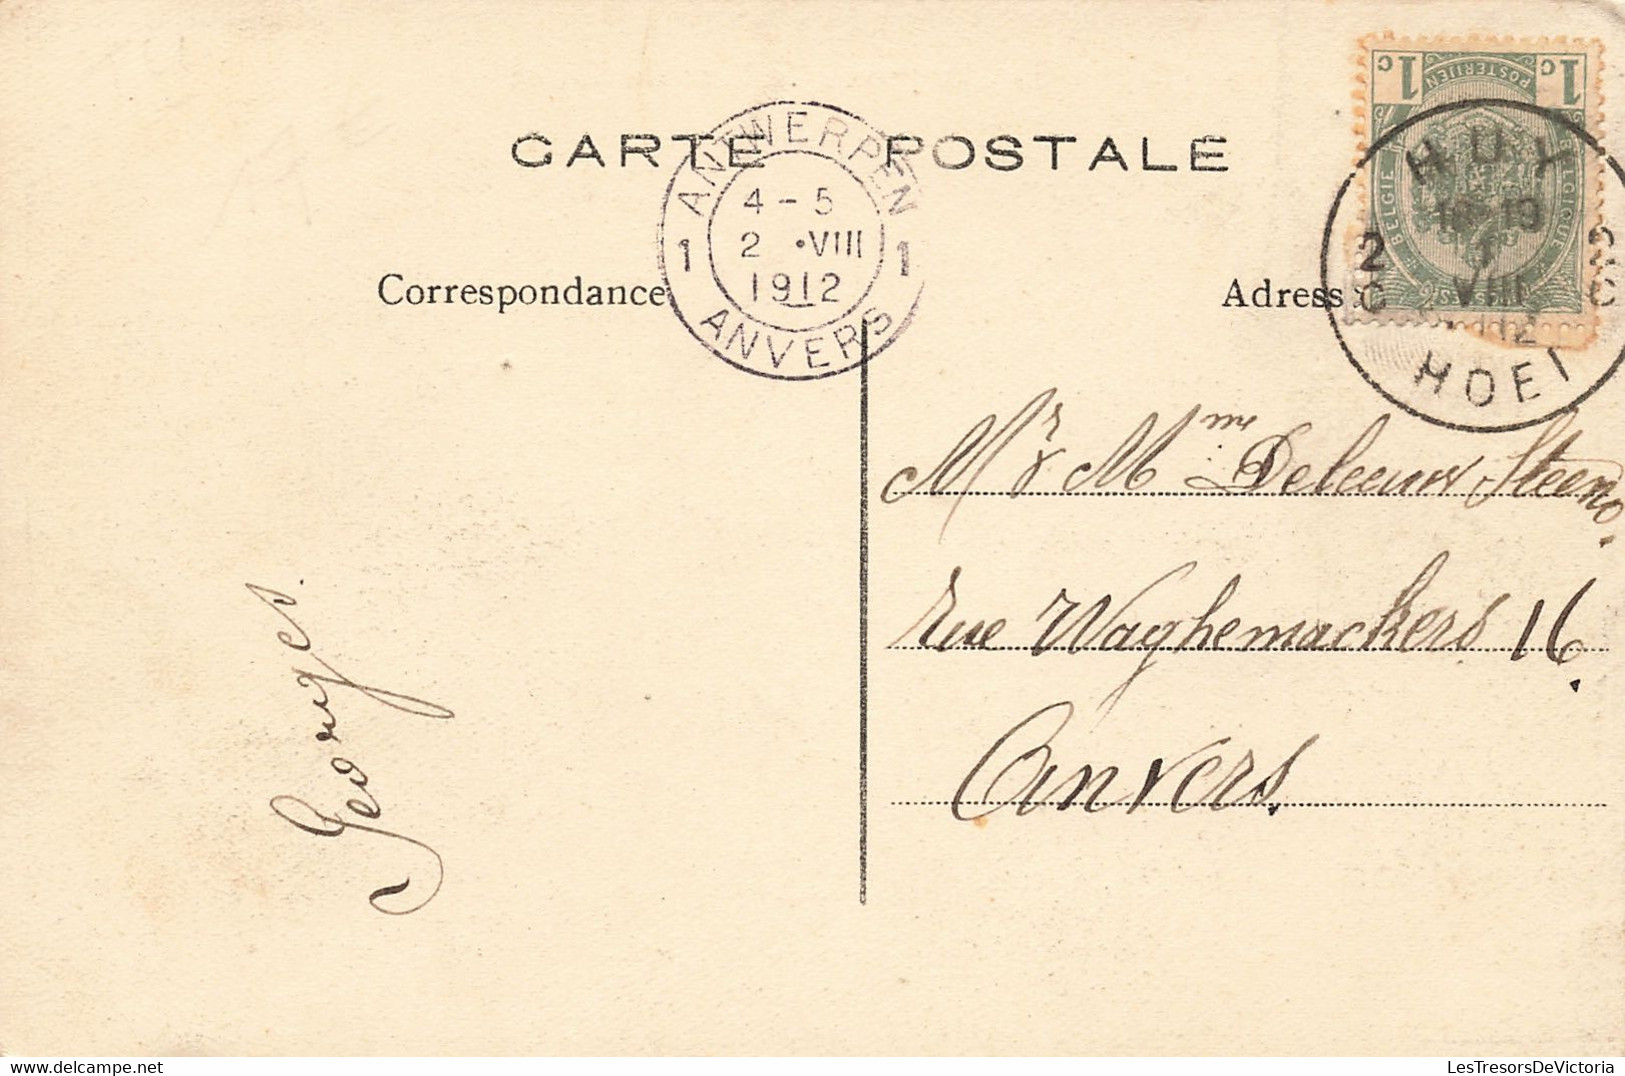 CARTE POSTALE
ANTWERPEN
4-5
2 •VIII
1912
1 1
ANVERS
1c 1c
POSTERIJEN
BELGIE BELGIQUE
HUY
18-19
1
VIII
12
2C 2C
HOEI
Correspondance
Adresse
Mr & Mme Deleeuw Steeno.
rue Waghemackers 16.
Anvers.
Georges.
LesTresorsDeVictoria